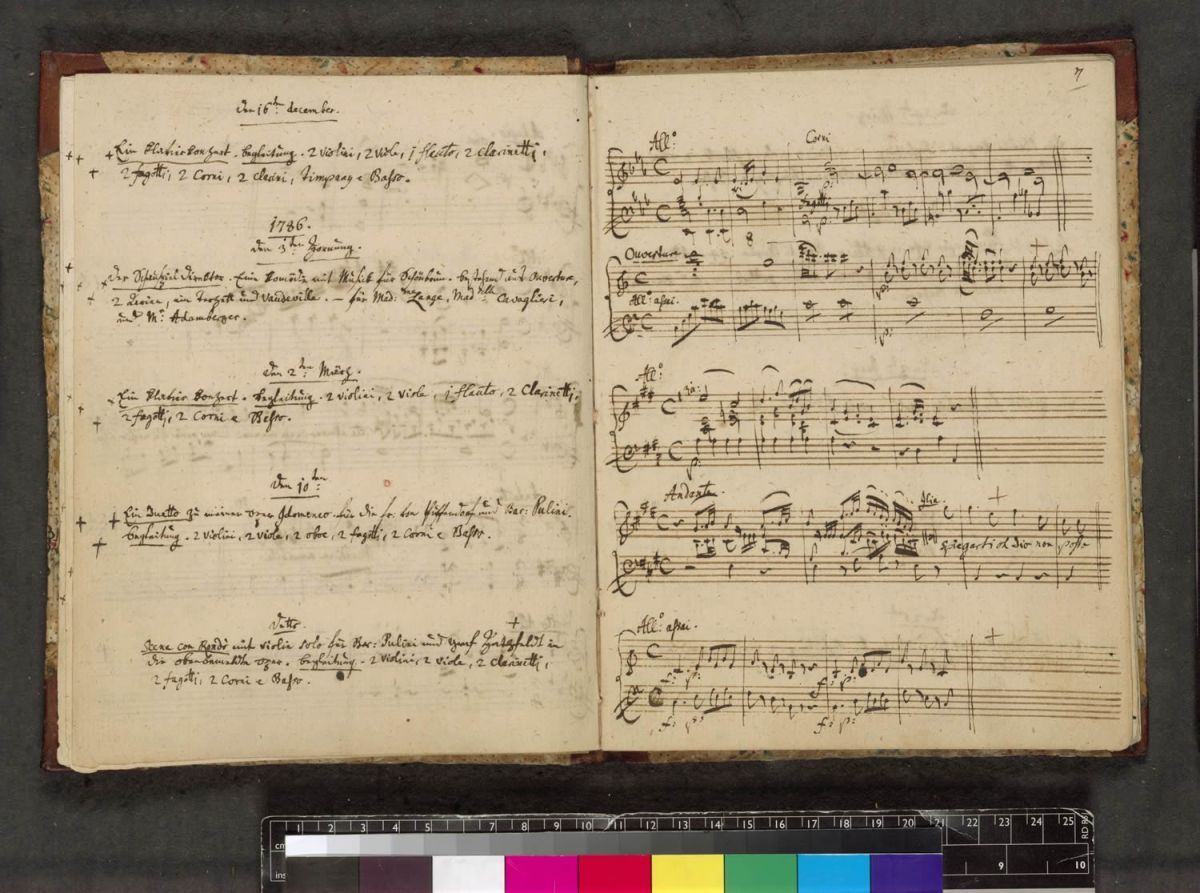 Den 16:ten december.
Ein klavierkonzert. Begleitung. 2 violini, 2 viole, 1 flauto, 2 clarinetti,
2 fagotti, 2 Corni, 2 clarini, timpany e Basso.
1786.
den 3:ten Hornung.
Der Schauspiel Direktor. Eine komödie mit Musick für Schönbrun. bestehend aus Ouverture,
2 Arien, ein Terzett und Vaudeville. — für Mad:me Lange, Mad:selle Cavaglieri,
und Mr: Adamberger.
den 2:ten März.
Ein klavier konzert. Begleitung. 2 violini, 2 viole, 1 flauto, 2 clarinetti,
2 fagotti, 2 Corni e Basso.
den 10:ten
Ein Duetto zu meiner oper Idomeneo. für die fr: von Puffendorf und Bar: Pulini.
Begleitung. 2 violini, 2 viole, 2 oboe, 2 fagotti, 2 Corni e Basso.
detto.
Scena con Rondò mit violin solo für Bar: Pulini und graf Hatzfeldt in
die obenbenannte oper. Begleitung. 2 violini, 2 viole, 2 clarinetti,
2 fagotti, 2 Corni e Basso.
7
All:o
Corni
fagotti
Ouverture
All:o assai.
All:o
Andante
Ilia.
spiegarti oh Dio non posso
All:o assai.
f: p: f: p:
f: p: f: p:
cm 1 2 3 4 5 6 7 8 9 10 11 12 13 14 15 16 17 18 19 20 21 22 23 24 25
ins 9 10